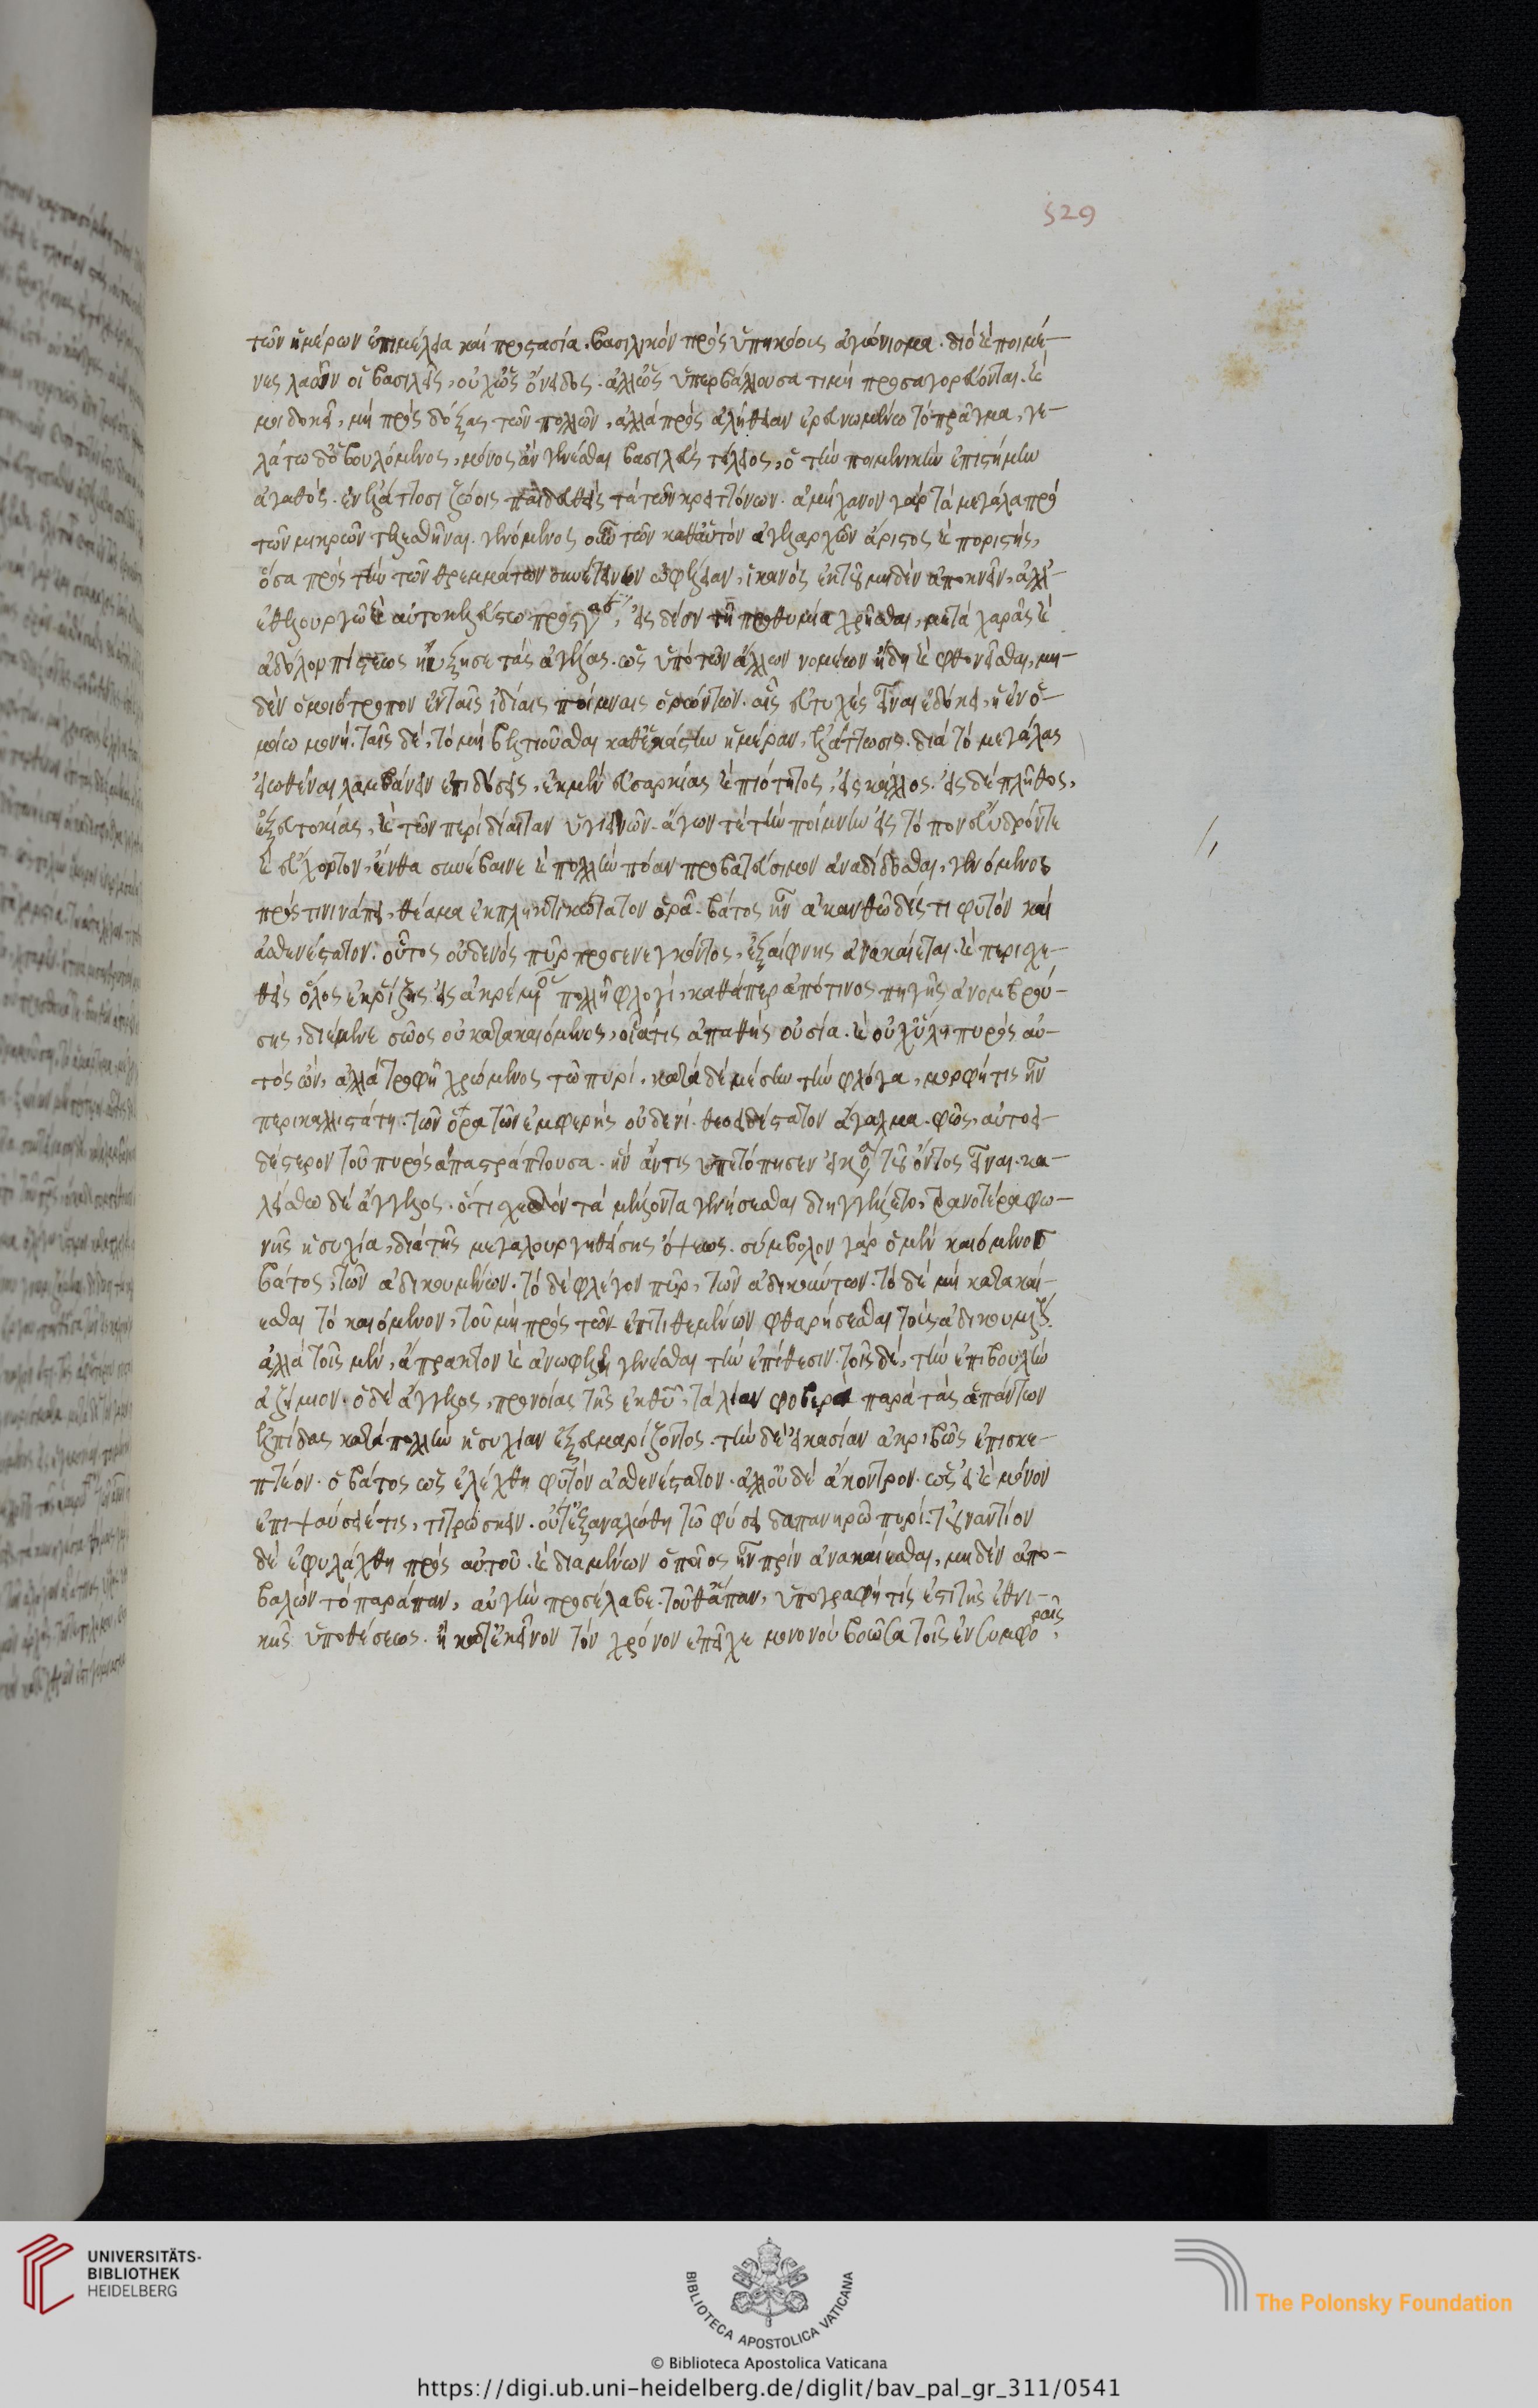 τῶν ἡμέρων ἐπιμέλεια καὶ προστασία. βασιλικὸν πρὸς ὑπηκόοις ἀγώνισμα. διὸ καὶ ποιμέ-
νες λαῶν οἱ βασιλεῖς, οὐχ ὡς ὄνειδος. ἀλλ' ὡς ὑπερβάλλουσα τιμὴ προσαγορεύονται. καὶ
μοι δοκεῖ, μὴ πρὸς δόξας τῶν πολλῶν, ἀλλὰ πρὸς ἀλήθειαν ἐρευνωμένω τὸ πρᾶγμα, γε-
λάτω δ' ὁ βουλόμενος, μόνος ἂν γενέσθαι βασιλεὺς τέλειος, ὁ τὴν ποιμενικὴν ἐπιστήμην
ἀγαθός. ἐν ἐλάττοσι ζώοις παιδευθεὶς τὰ τῶν κρειττόνων. ἀμήχανον γὰρ τὰ μεγάλα πρὸ
τῶν μικρῶν τελεσθῆναι. γενόμενος οὖν τῶν καθ' αὑτὸν ἀγελαρχῶν ἄριστος καὶ ποριστής,
ὅσα πρὸς τὴν τῶν θρεμμάτων συνέτεινεν ὠφέλειαν, ἱκανὸς ἐκ τοῦ μηδὲν ἀποκνεῖν, ἀλλ'
ἐθελουργῶ καὶ αὐτοκελεύστω εἰς δέον τῆ προθυμία χρῆσθαι, μετὰ χαρᾶς καὶ
ἀδόλου πίστεως ηὔξησε τὰς ἀγέλας. ὡς ὑπὸ τῶν ἄλλων νομέων ἤδη καὶ φθονεῖσθαι, μη-
δὲν ὁμοιότροπον ἐν ταῖς ἰδίαις ποίμναις ὁρώντων. αἷς εὐτυχὲς εἶναι ἐδόκει, ἡ ἐν ὁ-
μοίω μονή. ταῖς δέ, τὸ μὴ βελτιοῦσθαι καθ' ἑκάστην ἡμέραν, ἐλάττωσις. διὰ τὸ μεγάλας
εἰωθέναι λαμβάνειν ἐπιδόσεις, ἐκ μὲν εὐσαρκίας καὶ πιότητος, εἰς κάλλος. εἰς δὲ πλῆθος,
ἐξ εὐτοκίας, καὶ τῶν περὶ δίαιταν ὑγιεινῶν. ἄγων τὲ τὴν ποίμνην εἰς τόπον εὔυδρόν τε
καὶ εὔχορτον, ἔνθα συνέβαινε καὶ πολλὴν πόαν προβατεύσιμον ἀναδίδοσθαι, γενόμενος
πρός τινι νάπει, θέαμα ἐκπληκτικώτατον ὁρᾶ. βάτος ἦν ἀκανθῶδές τι φυτὸν καὶ
ἀσθενέστατον. οὗτος οὐδενὸς πῦρ προσενεγκόντος, ἐξαίφνης ἀνακαίεται. καὶ περισχε-
θεὶς ὅλος ἐκ ῥίζης εἰς ἀκρέμονα πολλῆ φλογί, καθάπερ ἀπό τινος πηγῆς ἀνομβρού-
σης, διέμενε σῶος οὐ κατακαιόμενος, οἷά τις ἀπαθὴς οὐσία. καὶ οὐχ ὕλη πυρὸς αὐ-
τὸς ὤν, ἀλλὰ τροφῆ χρώμενος τῶ πυρί. κατὰ δὲ μέσην τὴν φλόγα, μορφή τις ἦν
περικαλλεστάτη. τῶν ὁρατῶν ἐμφερὴς οὐδενί. θεοειδέστατον ἄγαλμα. φῶς, αὐγοει-
δέστερον τοῦ πυρὸς ἀπαστράπτουσα. ἣν ἄν τις ὑπετόπησεν εἰκόνα τοῦ ὄντος εἶναι. κα-
λείσθω δὲ ἄγγελος. ὅτι σχεδὸν τὰ μέλλοντα γενήσεσθαι διηγγέλλετο, τρανοτέρα φω-
νῆς ἡσυχία, διὰ τῆς μεγαλουργηθείσης ὄψεως. σύμβολον γὰρ ὁ μὲν καιόμενος
βάτος, τῶν ἀδικουμένων. τὸ δὲ φλέγον πῦρ, τῶν ἀδικούντων. τὸ δὲ μὴ κατακαί-
εσθαι τὸ καιόμενον, τοῦ μὴ πρὸς τῶν ἐπιτιθεμένων φθαρήσεσθαι τοὺς ἀδικουμένους.
ἀλλὰ τοῖς μέν, ἄπρακτον καὶ ἀνωφελῆ γενέσθαι τὴν ἐπίθεσιν. τοῖς δέ, τὴν ἐπιβουλὴν
ἀζήμιον. ὁ δὲ ἄγγελος, προνοίας τῆς ἐκ θεοῦ, τὰ λίαν φοβερὰ παρὰ τὰς ἁπάντων
ἐλπίδας κατὰ πολλὴν ἡσυχίαν ἐξευμαρίζοντος. τὴν δὲ εἰκασίαν ἀκριβῶς ἐπισκε-
πτέον. ὁ βάτος ὡς ἐλέχθη φυτὸν ἀσθενέστατον. ἀλλ' οὐδὲ ἄκεντρον. ὡς εἰ καὶ μόνον
ἐπιψαύσειέ τις, τιτρώσκειν. οὔτ' ἐξαναλώθη τῶ φύσει δαπανηρῶ πυρί. τοὐναντίον
δὲ ἐφυλάχθη πρὸς αὐτοῦ. καὶ διαμένων ὁποῖος ἦν πρὶν ἀνακαίεσθαι, μηδὲν ἀπο-
βαλὼν τὸ παράπαν, αὐγὴν προσέλαβε. τοῦθ' ἅπαν, ὑπογραφή τίς ἐστι τῆς ἐθνι-
κῆς ὑποθέσεως. ἣ κατ' ἐκεῖνον τὸν χρόνον ἐπεῖχε μονονοὺ βοῶσα τοῖς ἐν συμφοραῖς,
529
UNIVERSITÄTS-
BIBLIOTHEK
HEIDELBERG
BIBLIOTECA APOSTOLICA VATICANA
The Polonsky Foundation
© Biblioteca Apostolica Vaticana
https://digi.ub.uni-heidelberg.de/diglit/bav_pal_gr_311/0541